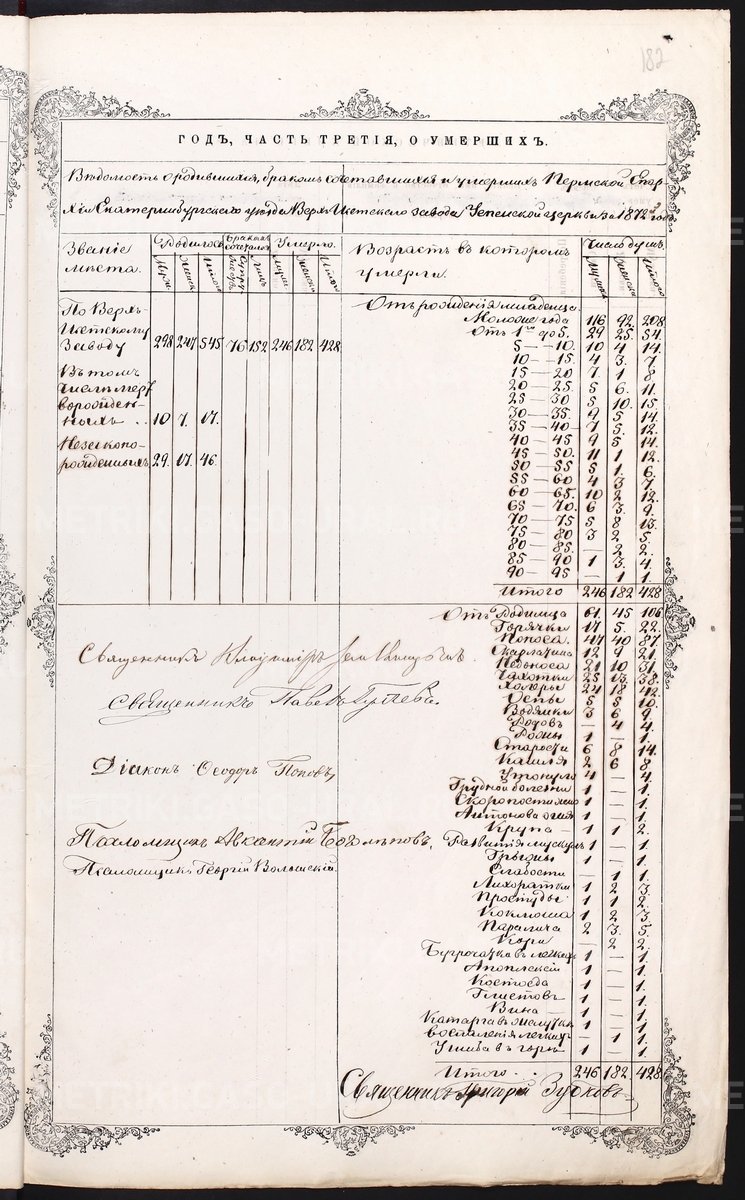 182
ГОДЪ, ЧАСТЬ ТРЕТІЯ, О УМЕРШИХЪ.
Вѣдомость о родившихся, бракомъ сочетавшихся и умершихъ Пермской Епар-
хіи Екатеринбургскаго уѣзда Верхъ Исетскаго завода Успенской церкви за 1872й годъ.
Званіе мѣста. Родилось Бракомъ сочеталось Умерло. Возрастъ въ которомъ умерли. Число душъ.
Муж. Женск. Итого Супружествъ Лицъ Муж. Женск. Итого Мужск. Женск. Итого
По Верхъ-
Исетскому
Заводу 298 247 545 76 152 246 182 428
Въ томъ
числѣ мерт
ворожден-
ныхъ . . 10 7. 17.
Незаконо-
рожденныхъ 29. 17. 46.
Отъ рожденія младенца
Моложе года 116 92. 208.
Отъ 1го до 5. 29 25. 54.
5 — 10. 10 4 14.
10 — 15. 4 3. 7
15 — 20 7. 1 8
20 — 25. 5 6. 11.
25 — 30 5 10. 15
30 — 35. 9 5 14.
35 — 40 7 5. 12.
40 — 45 9 5 14.
45 — 50. 11 1 12.
50 — 55 5 1. 6.
55 — 60 4 3. 7.
60 — 65. 10 2 12.
65 — 70. 6 3. 9.
70 — 75 5 8 13.
75 — 80 3 2 5.
80 — 85. — 2 2.
85 — 90 1 3. 4.
90 — 95 — 1 1.
Итого 246 182 428
Отъ Родимца 61. 45 106
Горячки 17 5. 22.
Поноса. 47 40 87.
Скарлатина 12 9 21.
Невзноса 21 10 31.
Чахотки 25 13. 38.
Хворы 24 18 42.
Оспы 5 5 10.
Водянки 3 6 9.
Родовъ — 4 4.
Рожи 1 — 1.
Старости 6 8 14.
Кашля 2 6 8.
Утонули 4 — 4.
Грудной болезни 1 — 1.
Скоропостижно 1 — 1.
Антонова огня 1 — 1.
Крупа — 1 1 2.
Развитія 1 — 1.
Грыжи 1 — 1.
Слабости — 1 1.
Лихорадки 1 2 3.
Простуды 1 1 2.
Коклюша 1 2 3.
Паралича 2 3. 5.
Кори — 2 2.
Бугорчатка въ легкихъ 1 — 1.
Апоплексіи 1 — 1.
Костоеда 1 — 1.
Глистовъ 1 — 1.
Вина — 1 — 1.
Катарра въ желудкѣ 1 — 1.
воспаленія легкихъ — 1 1.
Ушиба въ горѣ 1 — 1.
Итого . . 246 182 428
Священникъ Владиміръ
Священникъ Павелъ Гуляевъ.
Діаконъ Ѳеодоръ Поповъ,
Псаломщикъ Авксентій
Псаломщикъ Георгій
Священникъ Григорій Зубковъ